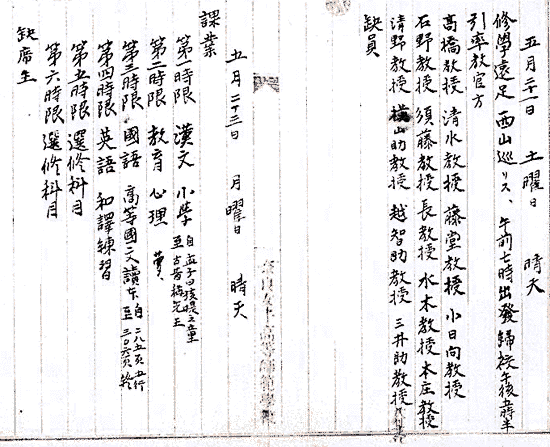 五月二十一日 土曜日 晴天
修學遠足 西山巡リス、午前七時出發 歸校午後五時半
引率教官方
高橋教授 清水教授 藤堂教授 小日向教授
石野教授 須藤教授 長教授 水木教授 本庄教授
清野教授 横山助教授 越智助教授 三井助教授
缺員
五月二十三日 月曜日 晴天
課業
第一時限 漢文 小學 自孟子曰孩提之童 至古昔稱先王
第二時限 教育 心理 夢、
第三時限 國語 高等國文讀本 自二八五頁五行 至三〇六頁終
第四時限 英語 和譯練習
第五時限 選修科目
第六時限 選修科目
缺席生
奈良女子高等師範學校